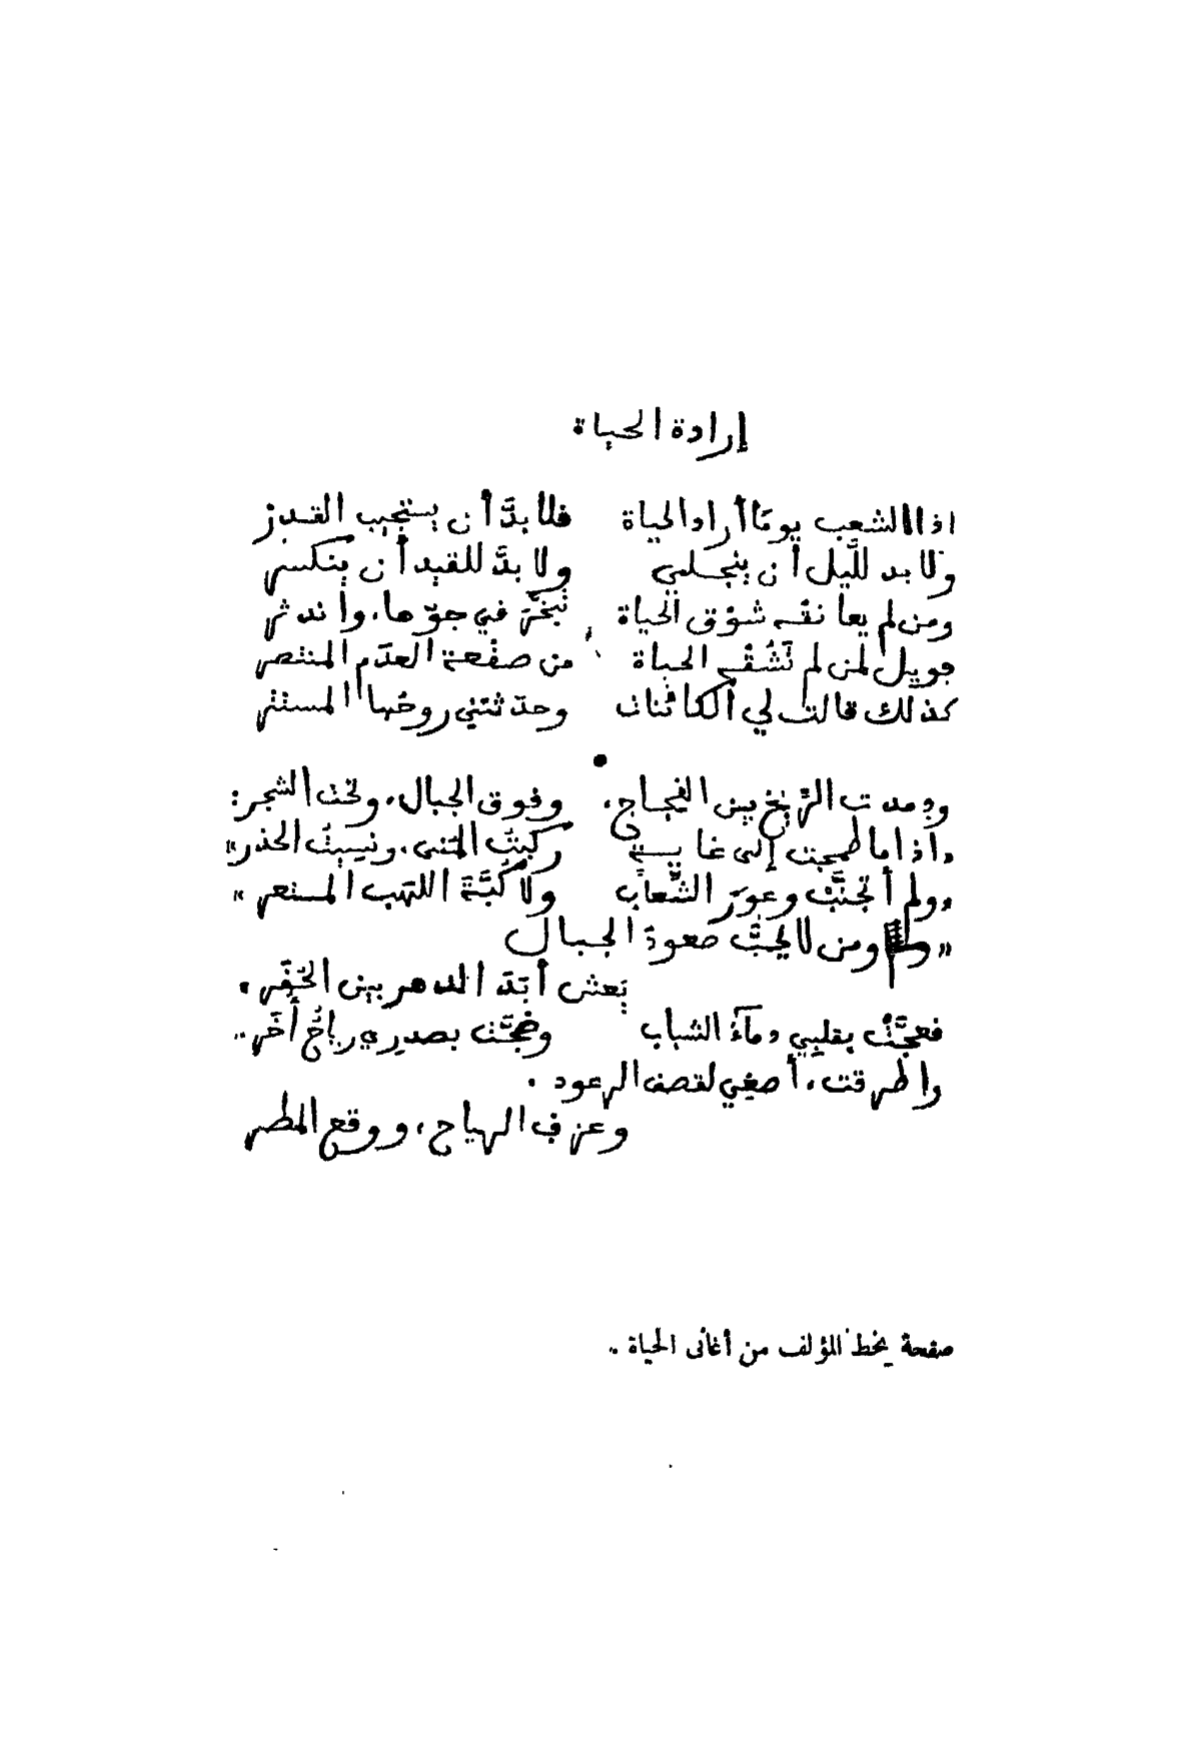 إرادة الحياة
اذا الشعب يومًا أراد الحياة فلا بدَّ أن يستجيب القدر
ولا بد للَّيل أن ينجلي ولا بدَّ للقيد أن ينكسر
ومن لم يعانقه شوْق الحياة تبخَّرَ في جوّها، واندثر
فويل لمن لم تَشُقْه الحياة من صفْعة العدَم المنتصر
كذلك قالت لي الكائنات وحدّثتني روحُها المستتر
ودمدمت الرِّيحُ بين الفجاج، وفوق الجبال، وتحت الشجر:
«اذا ما طمحت إلى غايةٍ ركبتُ المنى، ونسيتُ الحذر»
«ولم أتجنَّبْ وعورَ الشِّعاب ولا كُبَّةَ اللّهب المستعر»
« ومن لا يحبُّ صعودَ الجبال
يَعش أبَدَ الدهر بين الحُفَر »
فعجَّتْ بقلبي دمآءُ الشباب وضجَّت بصدري رياحٌ أُخَر..
واطرقت، أصغي لقصف الرعود.
وعزف الرياح، ووقع المطر
صفحة بخط المؤلف من أغانى الحياة ..